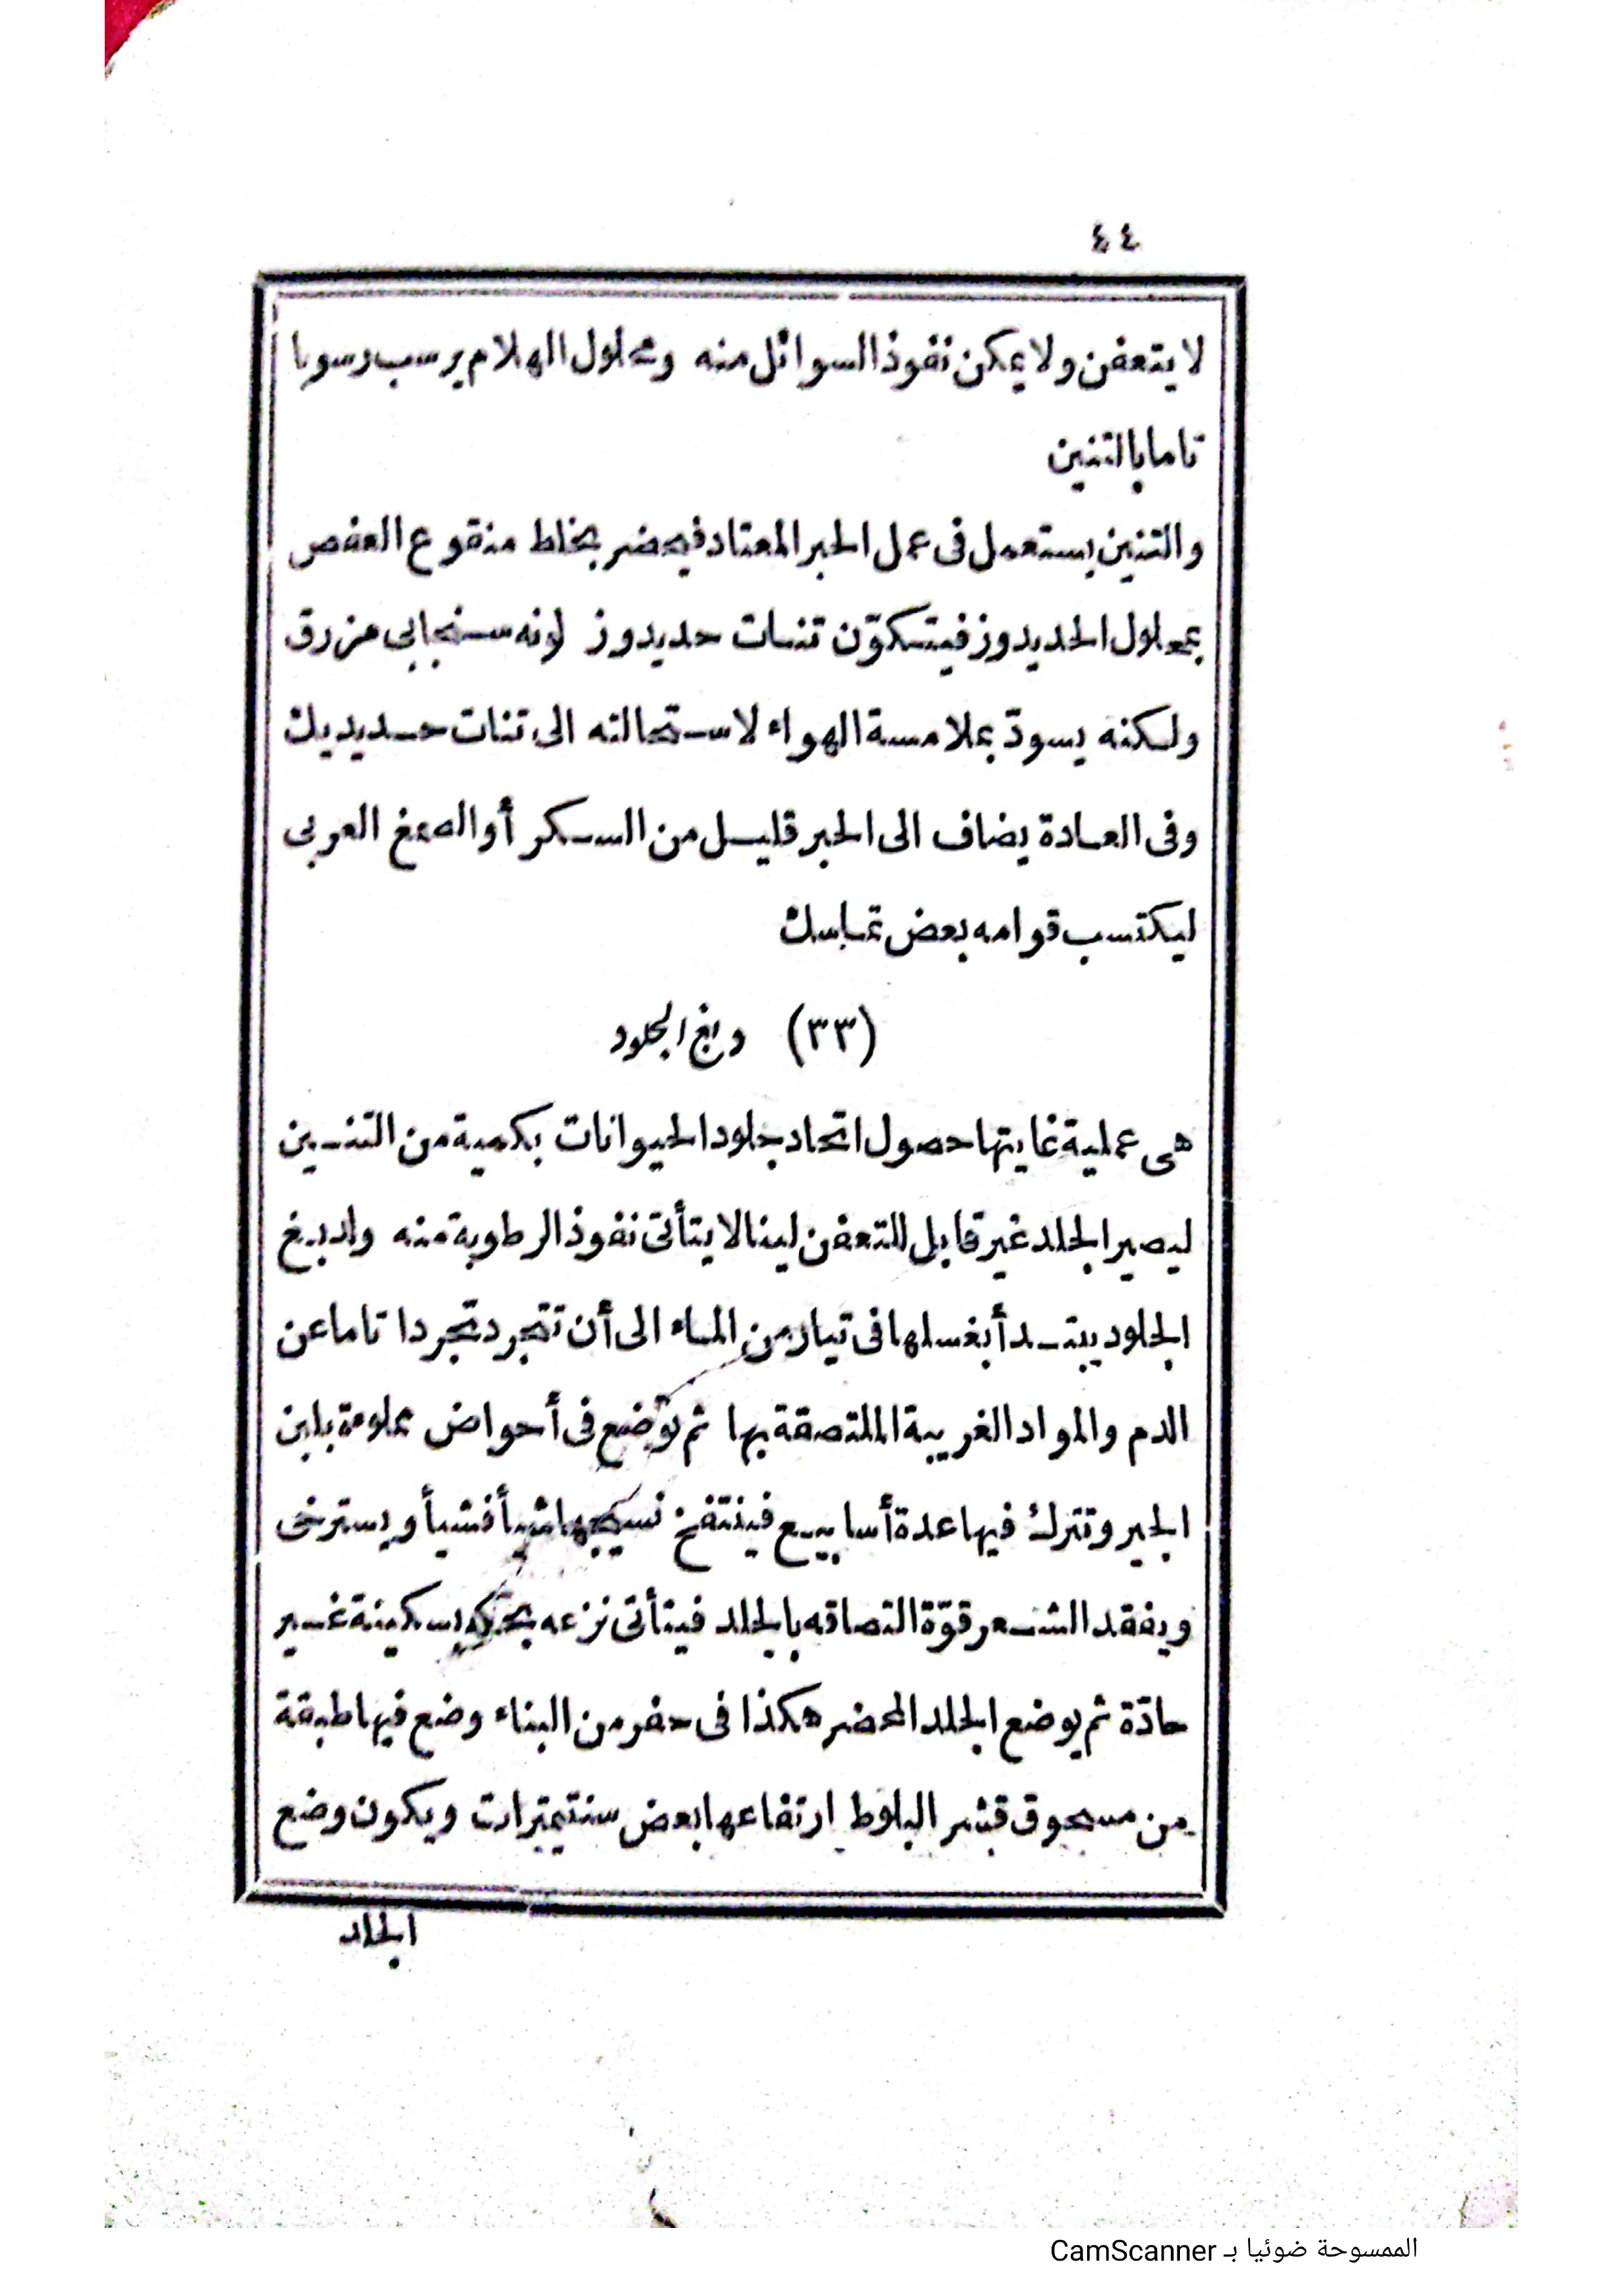 ٤٤
لا يتعفن ولا يمكن نفوذ السوائل منه ومحلول الهلام يرسب رسوبا
تاما بالتنين
والتنين يستعمل فى عمل الحبر المعتاد فيحضر بخلط منقوع العفص
بمحلول الحديدوز فيتكوّن تنات حديدوز لونه سنجابى مزرق
ولكنه يسودّ بملامسة الهواء لاستحالته الى تنات حديديك
وفى العادة يضاف الى الحبر قليل من السكر أو الصمغ العربى
ليكتسب قوامه بعض تماسك
(٣٣) دبغ الجلود
هى عملية غايتها حصول اتحاد جلود الحيوانات بكمية من التنين
ليصير الجلد غير قابل للتعفن لينا لا يتأتى نفوذ الرطوبة منه ولدبغ
الجلود يبتدأ بغسلها فى تيار من الماء الى أن تتجرد تجردا تاما عن
الدم والمواد الغريبة الملتصقة بها ثم توضع فى أحواض مملوءة بلبن
الجير وتترك فيها عدة أسابيع فينتفخ نسيجها شيأ فشيأ ويسترخى
ويفقد الشعر قوّة التصاقه بالجلد فيتأتى نزعه بحكه بسكينة غير
حادّة ثم يوضع الجلد المحضر هكذا فى حفر من البناء وضع فيها طبقة
من مسحوق قشر البلوط ارتفاعها بعض سنتيمترات ويكون وضع
الجلد
الممسوحة ضوئيا بـ CamScanner